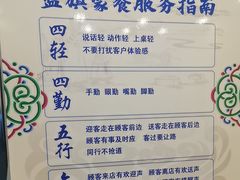 蓝旗蒙餐服务指南
四轻
说话轻 动作轻 上桌轻
不要打扰客户体验感
四勤
手勤 眼勤 嘴勤 脚勤
五行
迎客走在顾客前边 送客走在顾客后边
顾客有事及时应 客过要让路
同行不抢道
顾客来店有欢迎声 顾客离店有欢送声